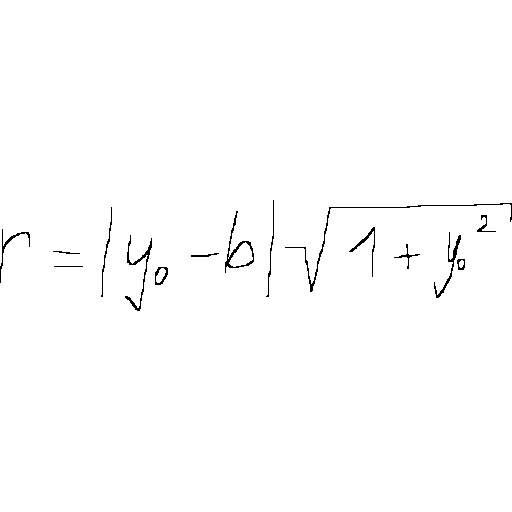 r = |y₀ - b| √(1 + y₀²)